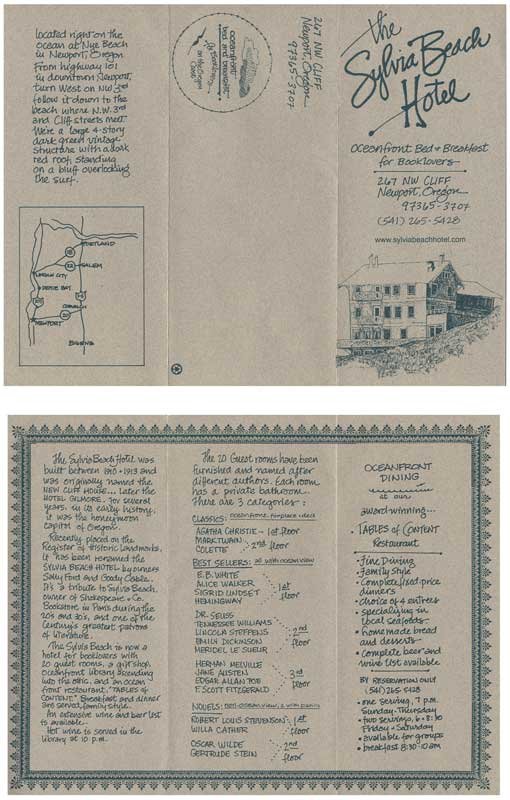 Located right on the
ocean at Nye Beach
in Newport, Oregon
From highway 101
in downtown Newport,
turn West on NW 3rd
follow it down to the
beach where N.W. 3rd
and Cliff streets meet.
We're a large 4-story
dark green vintage
structure with a dark
red roof, standing
on a bluff overlooking
the surf.
PORTLAND
18
22
SALEM
LINCOLN CITY
DEPOE BAY
101
I-5
CORVALLIS
20
NEWPORT
EUGENE
oceanfront
bed and breakfast
for Booklovers
on the Oregon
Coast
267 NW CLIFF
Newport, Oregon
97365-3707
the
Sylvia Beach
Hotel
Oceanfront Bed & Breakfast
for Booklovers
267 NW CLIFF
Newport, Oregon
97365-3707
(541) 265-5428
www.sylviabeachhotel.com
The Sylvia Beach Hotel was
built between 1910 & 1913 and
was originally named the
NEW CLIFF HOUSE... later the
HOTEL GILMORE. For several
years, in its early history,
it was the honeymoon
capitol of Oregon.
Recently placed on the
Register of Historic Landmarks,
it has been renamed the
SYLVIA BEACH HOTEL by owners
Sally Ford and Goody Cable.
It's a tribute to Sylvia Beach,
owner of Shakespeare & Co.
Bookstore in Paris during the
20's and 30's, and one of the
Century's greatest patrons
of literature.
The Sylvia Beach is now a
hotel for booklovers with
20 guest rooms, a gift shop,
oceanfront library ascending
into the attic, and an ocean
front restaurant, "TABLES OF
CONTENT". Breakfast and dinner
are served, family style.
An extensive wine and beer list
is available.
Hot wine is served in the
library at 10 p.m.
The 20 Guest rooms have been
furnished and named after
different authors. Each room
has a private bathroom.
There are 3 categories:
CLASSICS: oceanfront, fireplace & deck
AGATHA CHRISTIE - 1st floor
MARK TWAIN
COLETTE
2nd floor
BEST SELLERS: all with ocean view
E.B. WHITE
ALICE WALKER
SIGRID UNDSET
HEMINGWAY
1st
floor
DR. SEUSS
TENNESSEE WILLIAMS
LINCOLN STEFFENS
EMILY DICKINSON
MERIDEL LE SUEUR
2nd
floor
HERMAN MELVILLE
JANE AUSTEN
EDGAR ALLAN POE
F. SCOTT FITZGERALD
3rd
floor
NOVELS: non-ocean view,
ROBERT LOUIS STEVENSON
WILLA CATHER
1st
floor
OSCAR WILDE
GERTRUDE STEIN
2nd
floor
OCEANFRONT
DINING
at our
award winning...
TABLES of CONTENT
Restaurant
• Fine Dining
• Family Style
• Complete, fixed price
dinners
• choice of 4 entrees
• specializing in
local seafoods
• homemade bread
and desserts
• complete beer and
wine list available
BY RESERVATION ONLY
(541) 265-5428
• one serving, 7 p.m.
Sunday - Thursday
• two servings, 6 & 8:30
Friday & Saturday
• available for groups
• breakfast 8:30-10 am